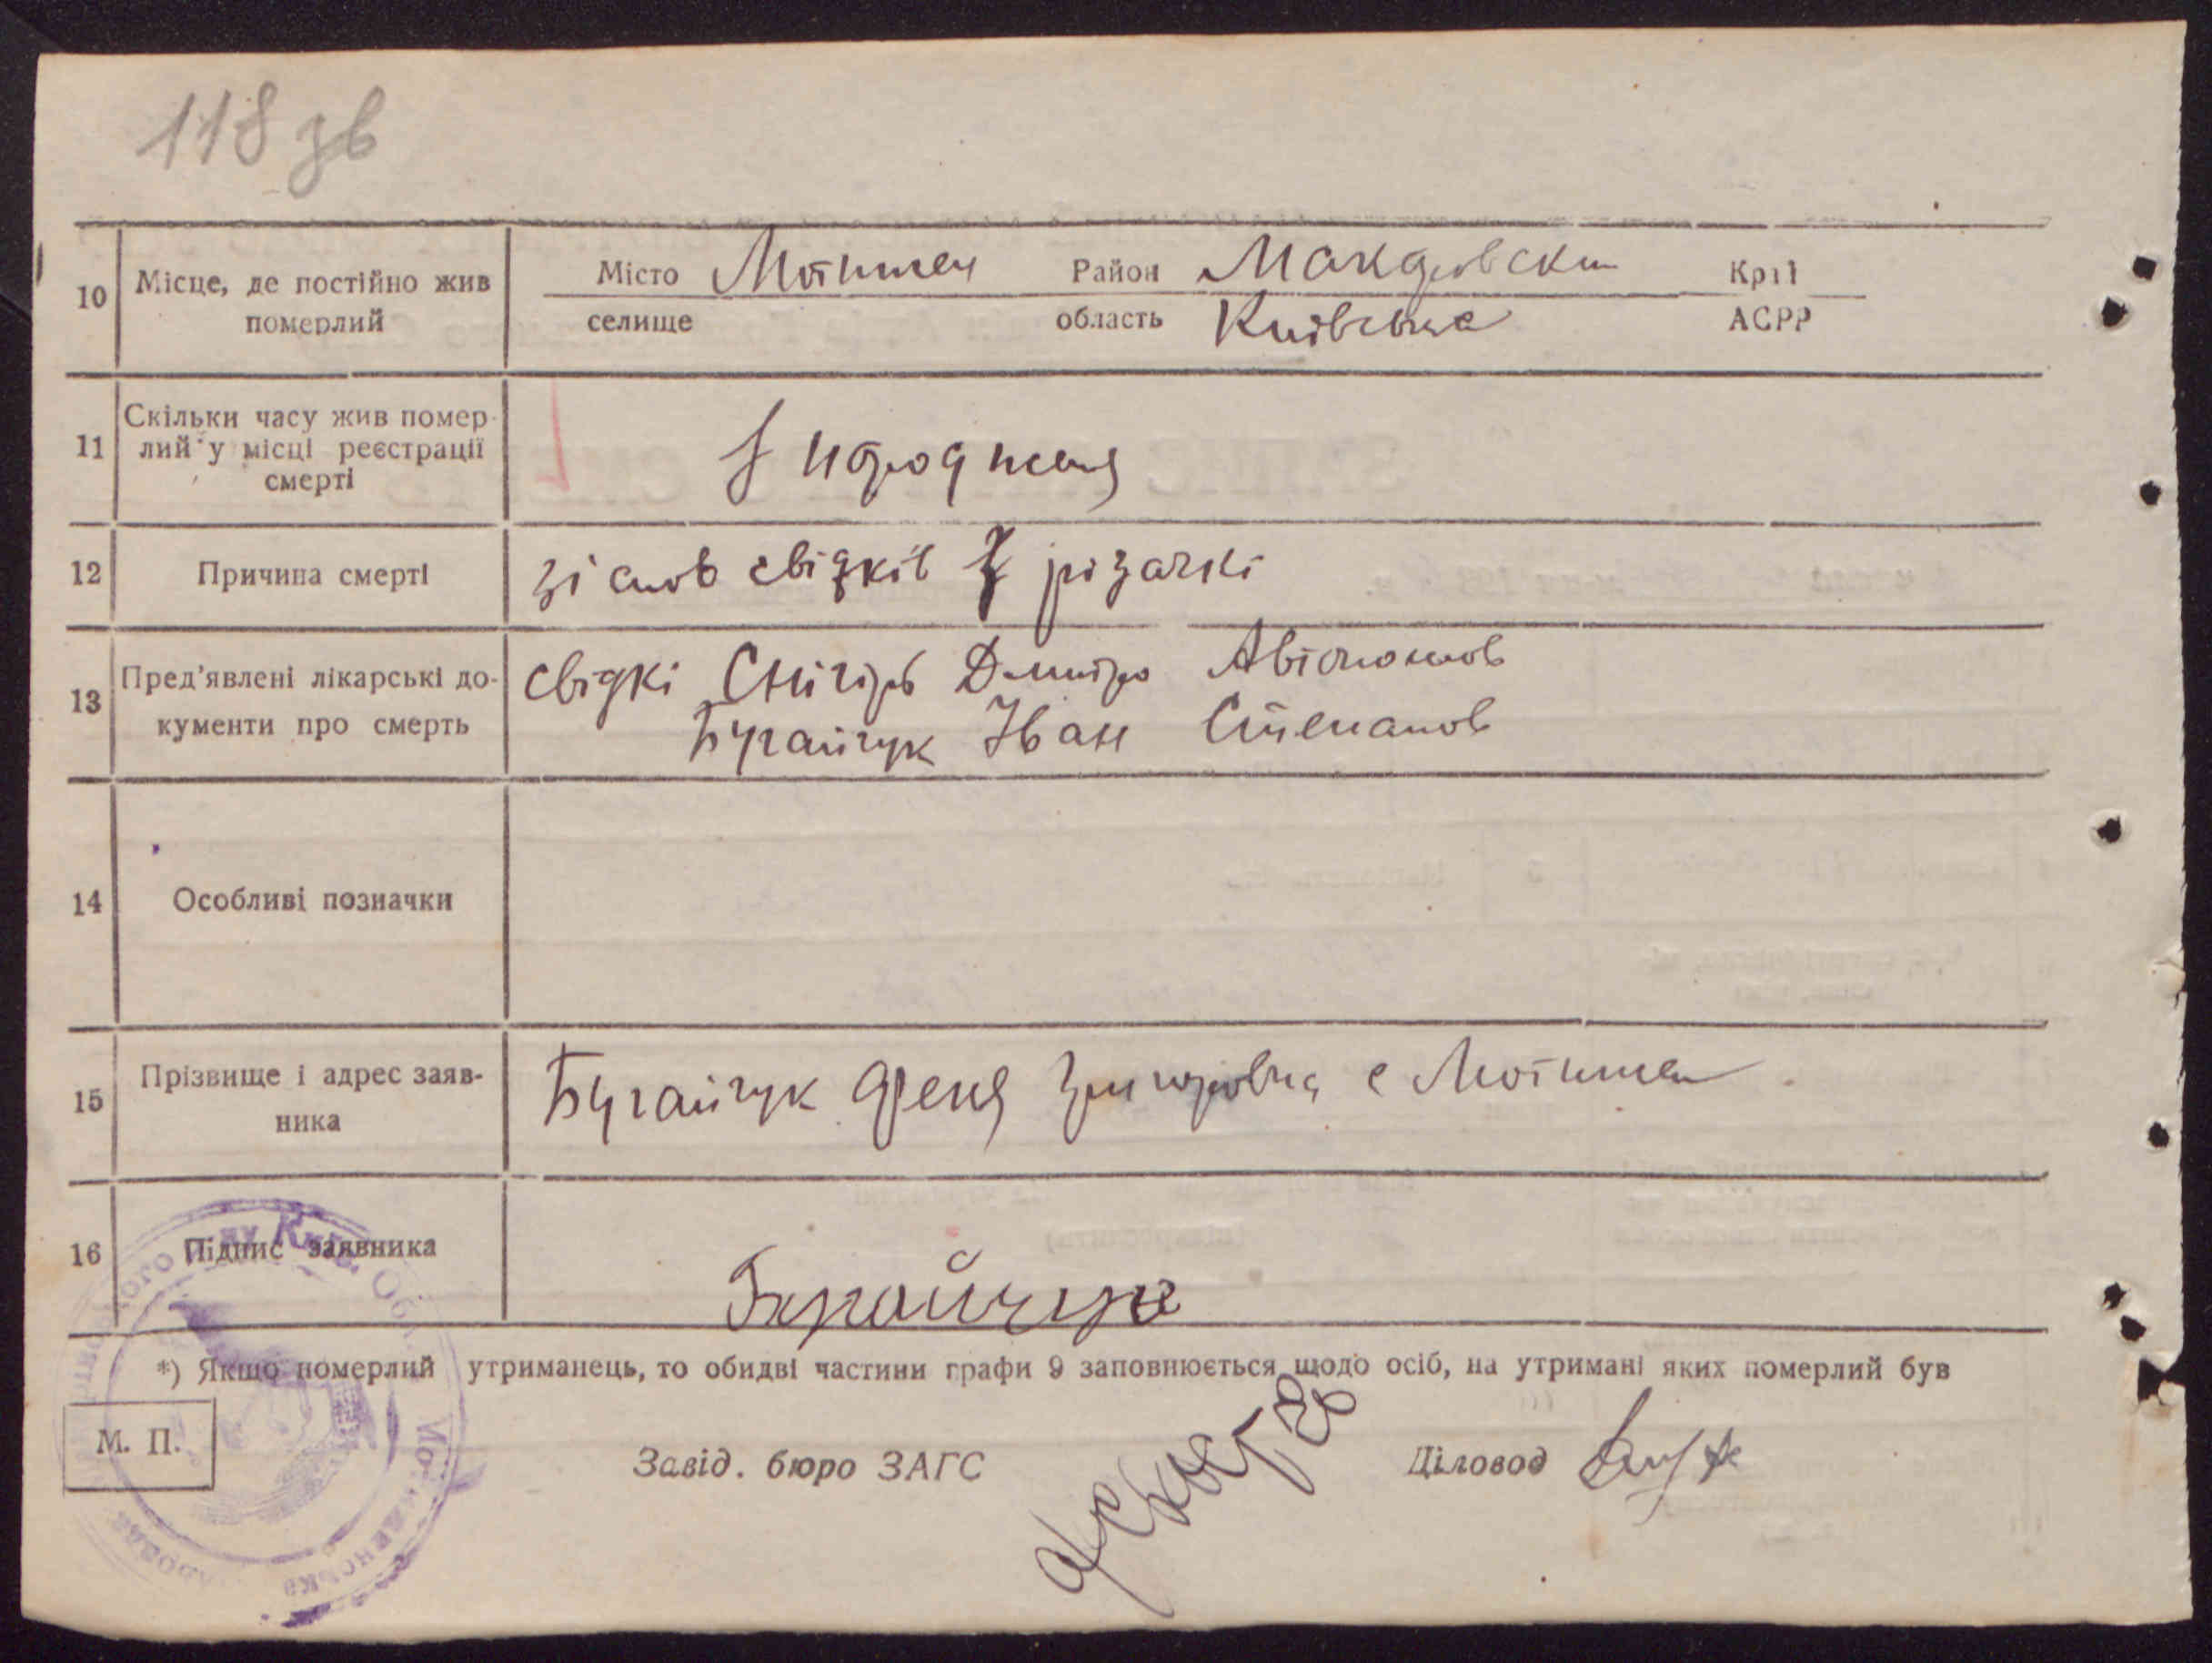 118 зв
10 Місце, де постійно жив померлий
Місто Мотижен Район Макаровски Край
селище область Київська АСРР
11 Скільки часу жив помер-
лий у місці реєстрації
смерті
З народженя
12 Причина смерті зі слов свідків З різачкі
13 Пред'явлені лікарські до-
кументи про смерть
свідкі Снігірь Дмитро Автономов
Бугайчук Іван Степанов
14 Особливі позначки
15 Прізвище і адрес заяв-
ника
Бугайчук Феня Григоровна с Мотижен
16 Підпис заявника
Бугайчук
*) Якщо померлий утриманець, то обидві частини графи 9 заповнюється щодо осіб, на утримані яких померлий був
М. П. Завід. бюро ЗАГС Діловод